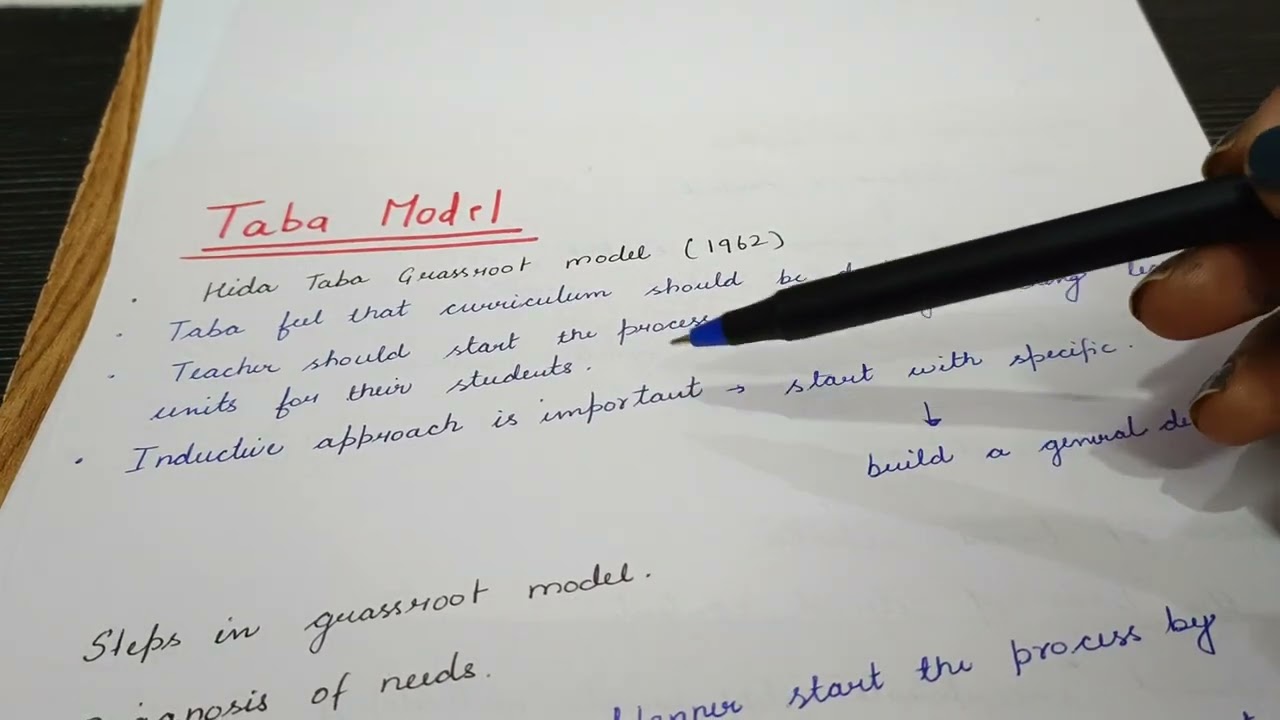 Taba Model
• Hida Taba Grassroot model (1962)
• Taba feel that curriculum should be
• Teacher should start the process
units for their students.
• Inductive approach is important → start with specific.
↓
build a general
Steps in grassroot model.
of needs.
start the process by